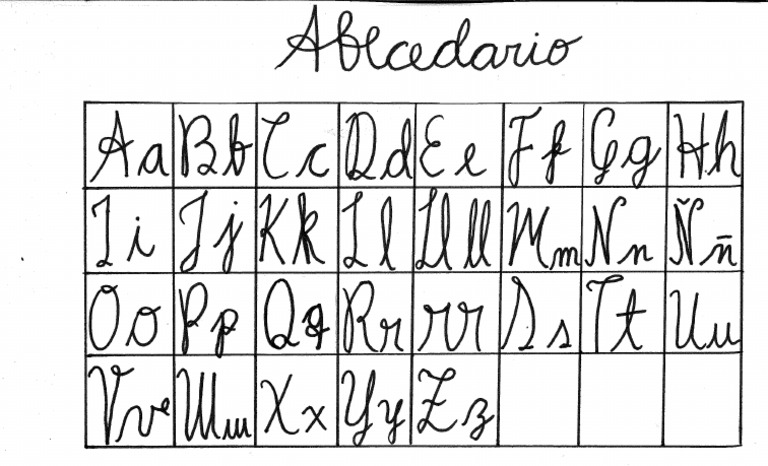 Abecedario
Aa Bb Cc Dd Ee Ff Gg Hh
Ii Jj Kk Ll Llll Mm Nn Ññ
Oo Pp Qq Rr rr Ss Tt Uu
Vv Ww Xx Yy Zz